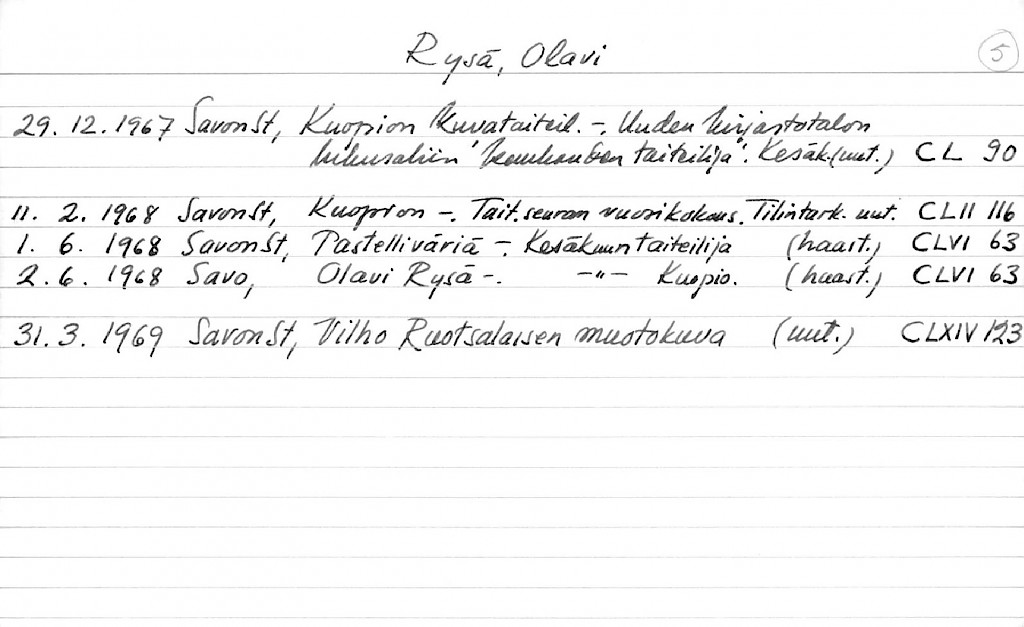 Rysä, Olavi
5
29. 12. 1967 SavonSt, Kuopion Kuvataiteil. –. Uuden kirjastotalon
lukusaliin "kuukauden taiteilija". Kesäk. (uut.) CL 90
11. 2. 1968 SavonSt, Kuopion –. Tait.seuran vuosikokous. Tilintark. uut. CLII 116
1. 6. 1968 SavonSt, Pastelliväriä –. Kesäkuun taiteilija (haast.) CLVI 63
2. 6. 1968 Savo, Olavi Rysä –. –"– Kuopio. (haast.) CLVI 63
31. 3. 1969 SavonSt, Vilho Ruotsalaisen muotokuva (uut.) CLXIV 123